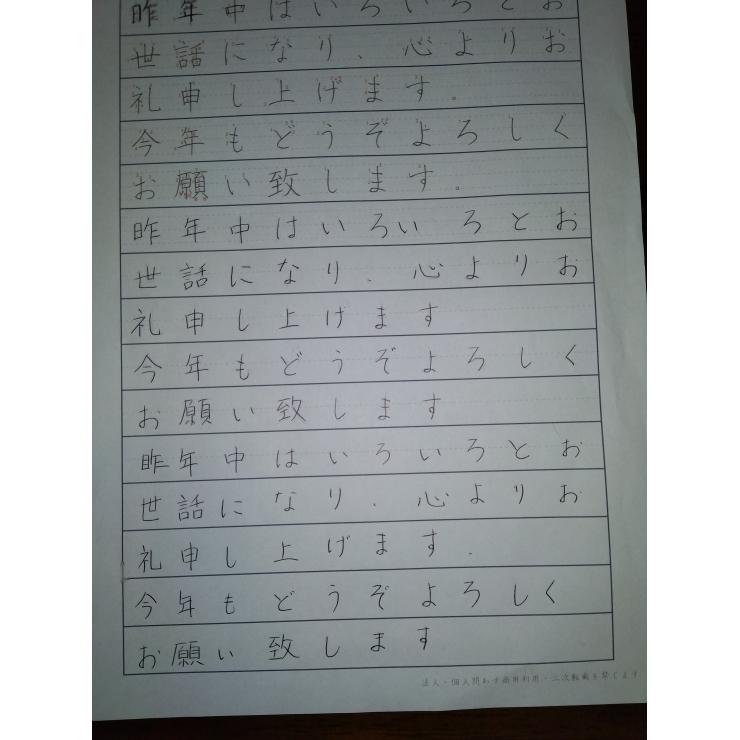 昨年中はいろいろとお
世話になり、心よりお
礼申し上げます。
今年もどうぞよろしく
お願い致します。
昨年中はいろいろとお
世話になり、心よりお
礼申し上げます
今年もどうぞよろしく
お願い致します
昨年中はいろいろとお
世話になり、心よりお
礼申し上げます.
今年もどうぞよろしく
お願い致します
法人・個人問わず商用利用・二次転載を禁じます